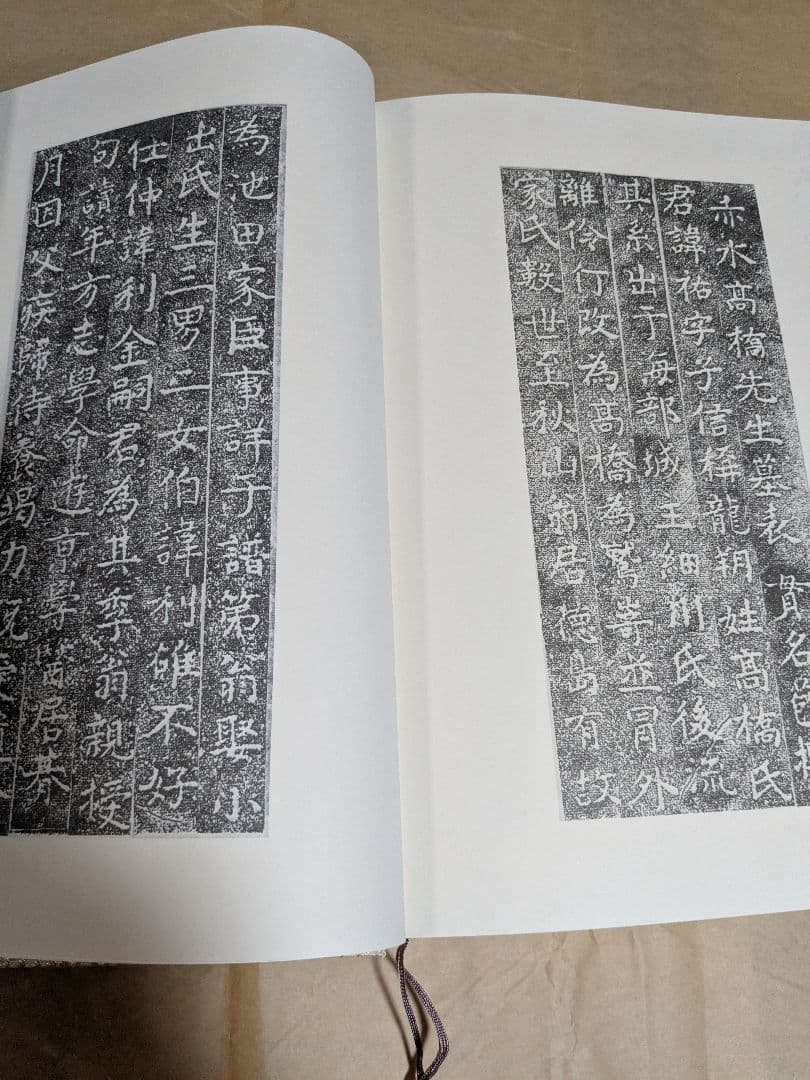 赤水髙橋先生墓表 貫名
君諱祐字子信稱龍朔姓髙橋氏
其系出于海部城主細川氏後流
離伶仃改為髙橋為鷲𡶶並冐外
家氏數世至秋山翁居徳島有故
為池田家臣事詳于譜第翁娶小
出氏生三男二女伯諱利雄不好
仕仲諱利金嗣君為其季翁親授
句讀年方志學命遊京學醫居朞
月因父疾歸侍養竭力